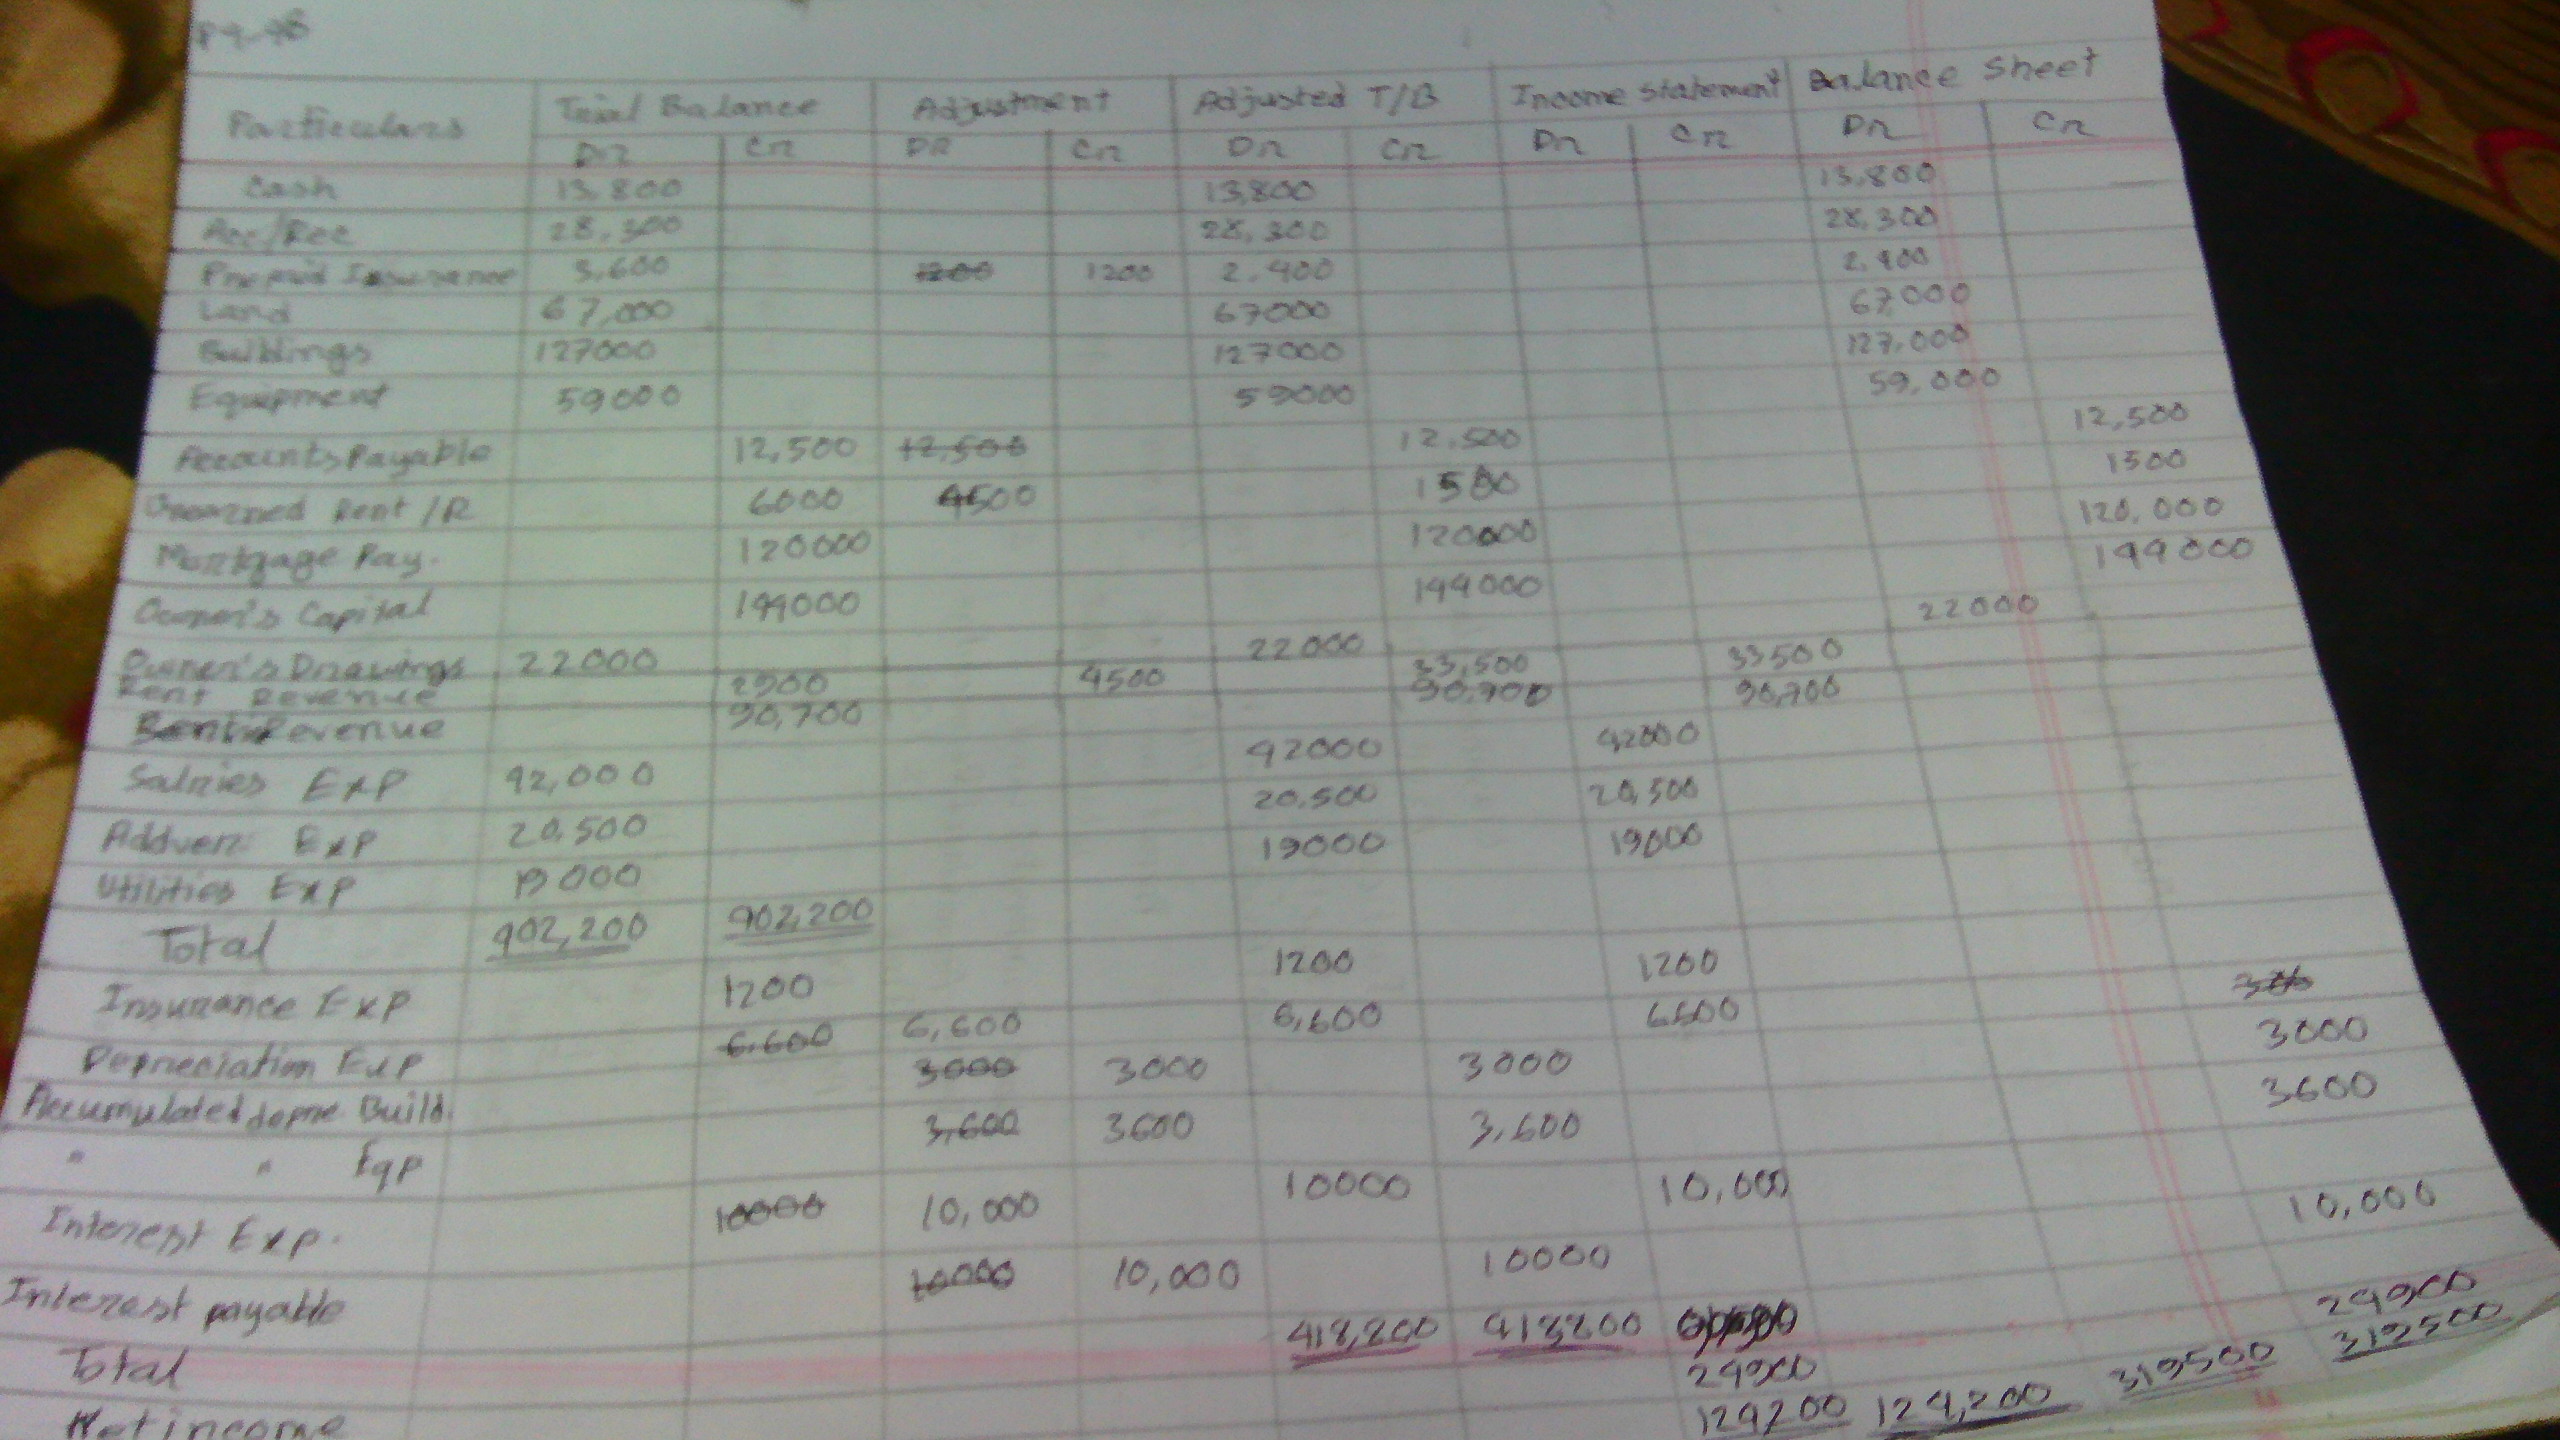 P4-4B
Particulars Trial Balance Adjustment Adjusted T/B Income Statement Balance Sheet
Dr Cr DR Cr Dr Cr Dr Cr Dr Cr
Cash 13,800 13,800 13,800
Acc/Rec 28,300 28,300 28,300
Prepaid Insurance 3,600 1200 1200 2,400 2,400
Land 67,000 67000 67000
Buildings 127000 127000 127,000
Equipment 59000 59000 59,000
Accounts Payable 12,500 12,500 12,500 12,500
Unearned Rent /R 6000 4500 1500 1500
Mortgage Pay. 120000 120000 120,000
Owner's Capital 144000 144000 144000
Owner's Drawings 22000 22000 22000
Rent Revenue 2900 4500 33,500 33500
Revenue 90,700 90,700 90,700
Salaries Exp 42,000 42000 42000
Addver: Exp 20,500 20,500 20,500
Utilities Exp 19000 19000 19000
Total 402,200 402,200
Insurance Exp 1200 1200 1200
Depreciation Exp 6,600 6,600 6,600 6600
Accumulated depre. Build. 3000 3000 3000 3000
" " Eqp 3,600 3600 3,600 3600
Interest Exp. 10000 10,000 10000 10,000
Interest payable 10000 10,000 10000 10,000
Total 418,200 418200
Net income 24900 24900
124200 124,200 319500 319500